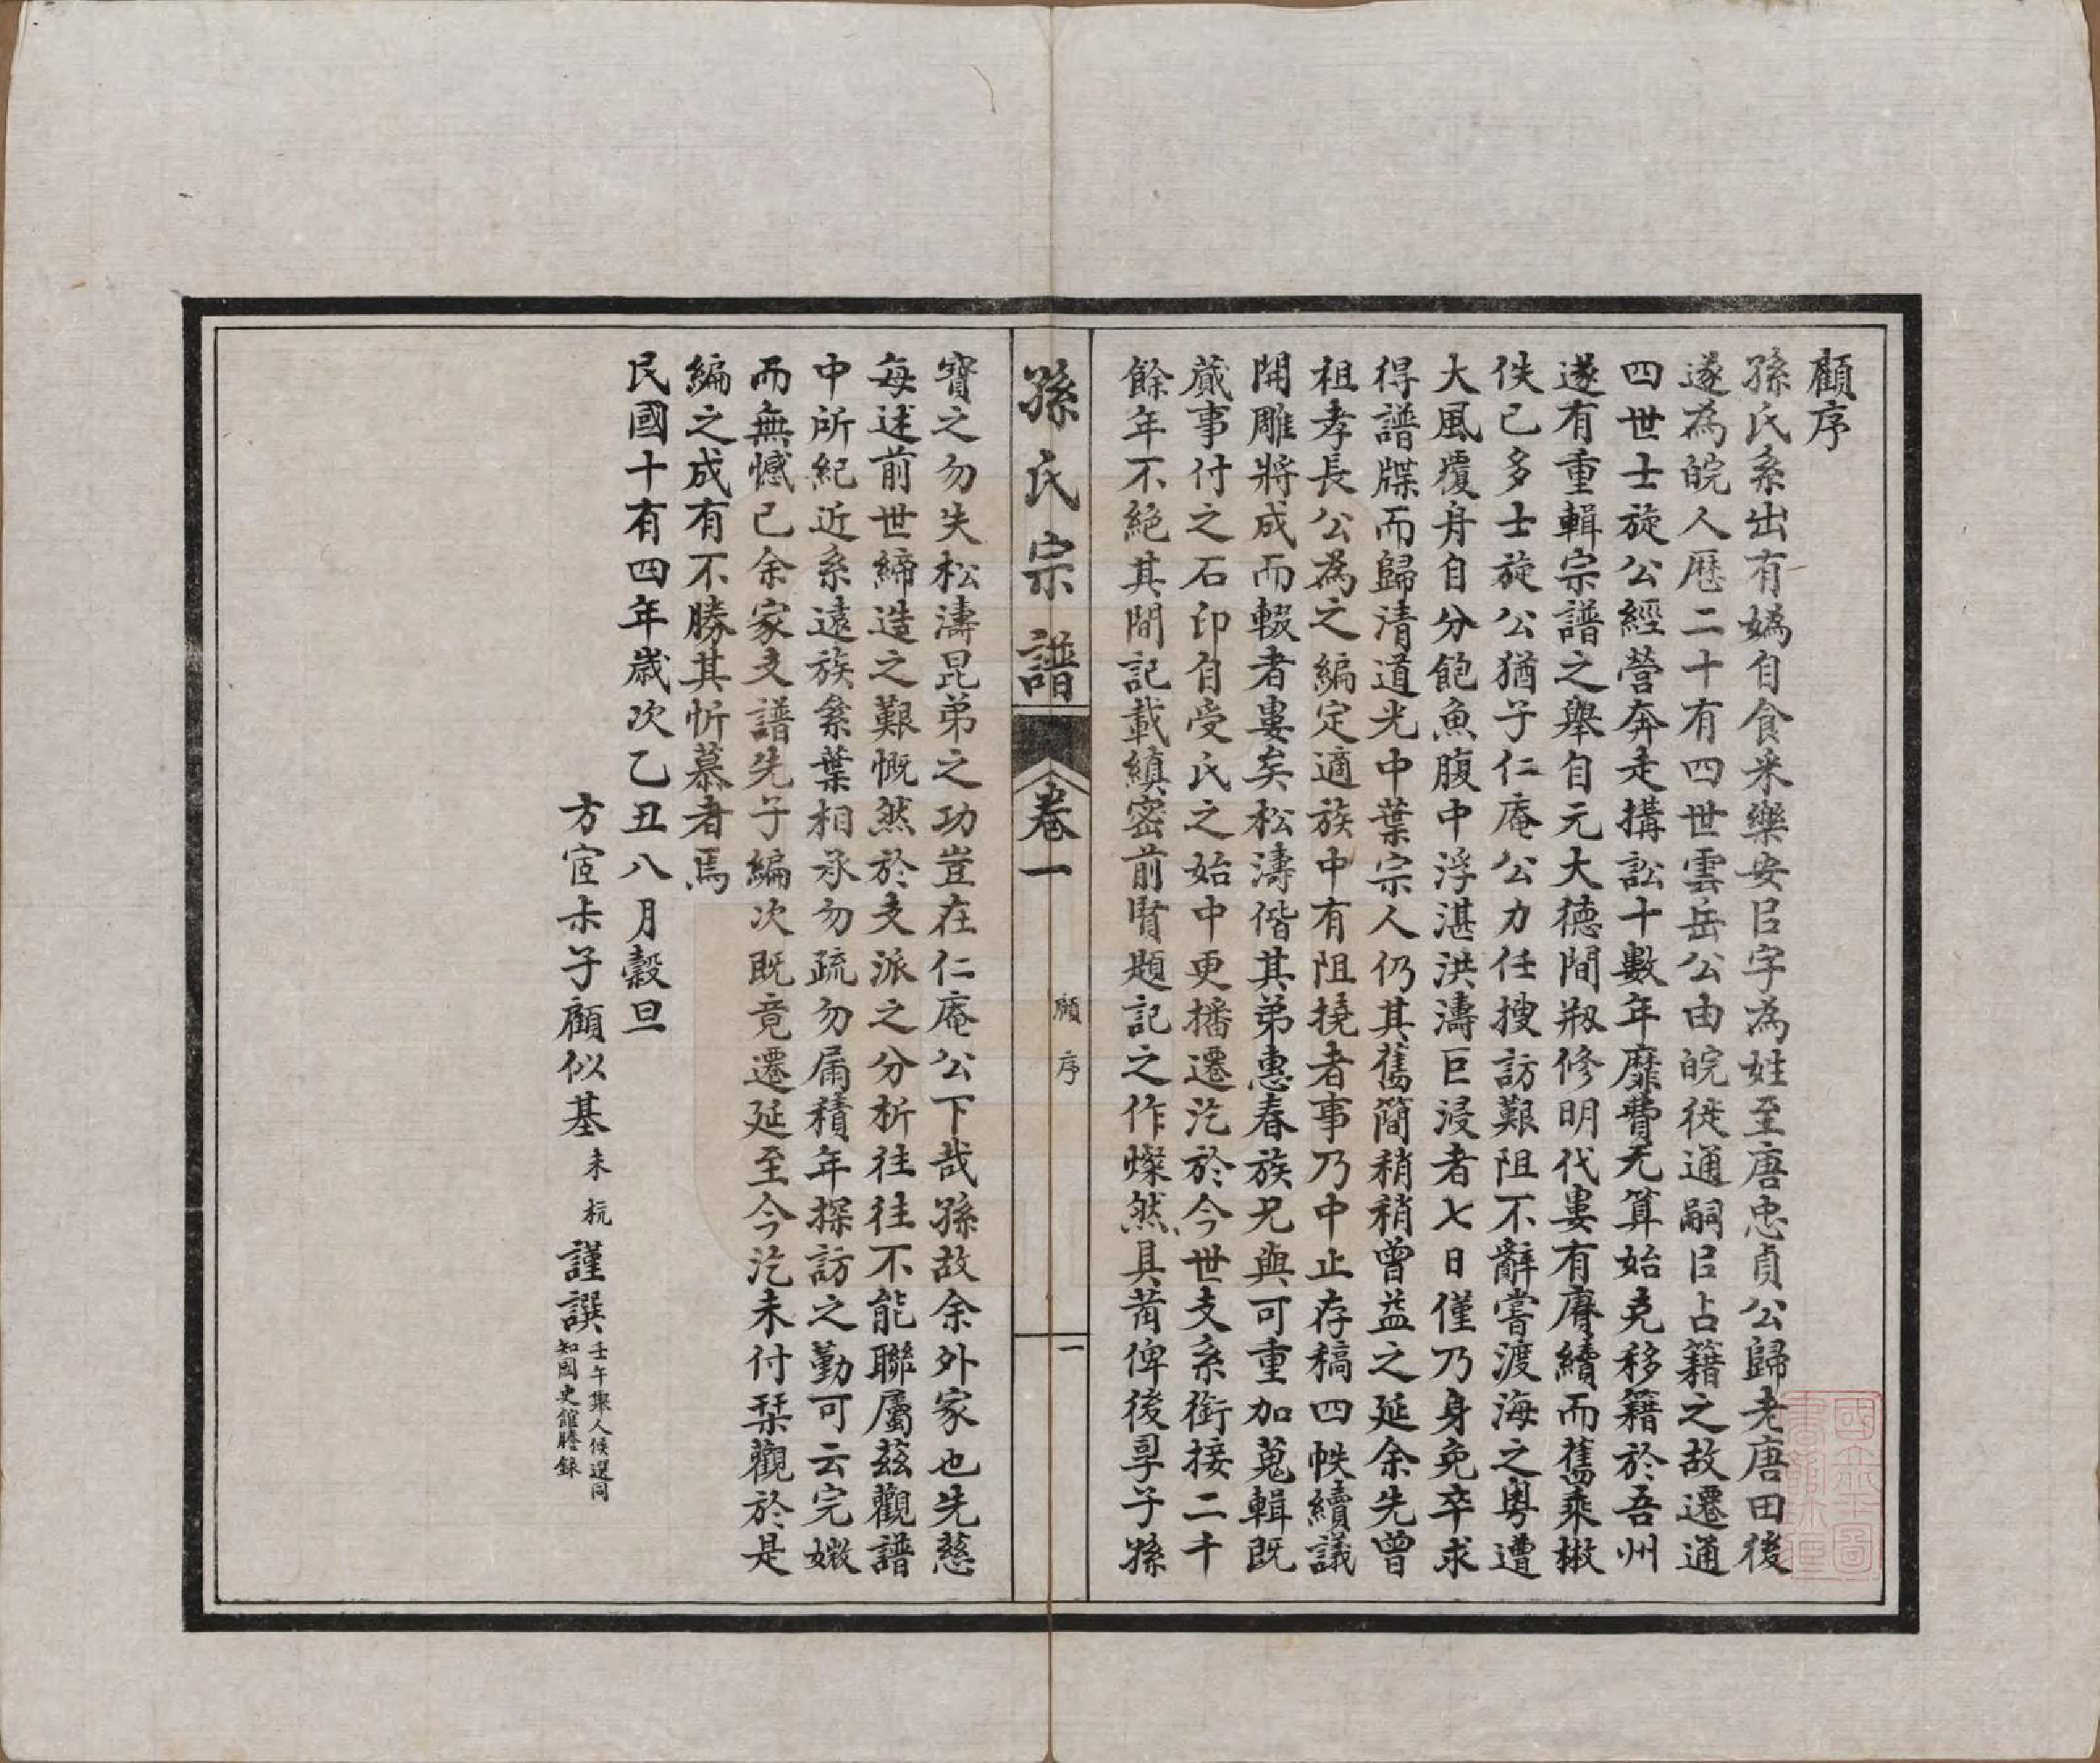 顧序
孫氏系出有嬀自食采樂安㠯字為姓至唐忠貞公歸老唐田後
遂為皖人厯二十有四世雲岳公由皖徙通嗣㠯占籍之故遷通
四世士旋公經營奔走搆訟十數年靡費无算始克移籍於吾州
遂有重輯宗譜之舉自元大德間剏修明代婁有賡續而舊乘㪚
佚已多士旋公猶子仁庵公力任搜訪艱阻不辭嘗渡海之粵遭
大風覆舟自分飽魚腹中浮湛洪濤巨浸者七日僅乃身免卒求
得譜牒而歸清道光中葉宗人仍其舊簡稍稍曾益之延余先曾
祖孝長公為之編定適族中有阻撓者事乃中止存稿四帙續議
開雕將成而輟者婁矣松濤偕其弟惠春族兄與可重加蒐輯既
蕆事付之石印自受氏之始中更播遷汔於今世支系銜接二千
餘年不絕其間記載縝密前賢題記之作燦然具莆俾後㝊子孫
孫氏宗譜
卷一
顧序
一
寶之勿失松濤昆弟之功豈在仁庵公下哉孫故余外家也先慈
每述前世締造之艱慨然於支派之分析往往不能聯屬茲觀譜
中所紀近系遠族絫葉相承勿疏勿屚積年探訪之勤可云完媺
而無憾已余家支譜先子編次既竟遷延至今汔未付栞觀於是
編之成有不勝其忻慕者焉
民國十有四年歲次乙丑八月穀旦
方宦尗子顧似基 未杭 謹譔 壬午舉人候選同
知國史館謄錄